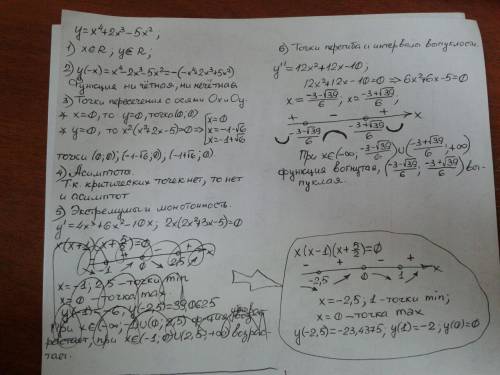 y=x⁴+2x³-5x²;
1) x∈R; y∈R;
2) y(-x)=x⁴-2x³-5x²=-(-x⁴+2x³+5x²)
Функция ни чётная, ни нечётная.
3) Точки пересечения с осями Ох и Оу.
* x=0, то y=0, точка (0;0)
* y=0, то x²(x²+2x-5)=0 ⇒ [x=0
x=-1-√6
x=-1+√6
точки (0;0); (-1-√6;0); (-1+√6;0)
4) Асимптота.
Т.к. критических точек нет, то нет
и асимптот
5) Экстремумы и монотонность.
y'=4x³+6x²-10x; 2x(2x²+3x-5)=0
-1 0 2,5 x
x=-1; 2,5 - точки min
x=0 - точка max
y(-1)=-6; y(-2,5)=39,0625
6) Точки перегиба и интервалы выпуклости.
y''=12x²+12x-10;
12x²+12x-10=0 ⇒ 6x²+6x-5=0
x=(-3-√39)/6; x=(-3+√39)/6;
+ - + x
(-3-√39)/6 (-3+√39)/6
При x∈(-∞; (-3-√39)/6)∪((-3+√39)/6; +∞)
функция вогнутая, ((-3-√39)/6; (-3+√39)/6) вы-
пуклая.
x(x-1)(x+5/2)=0
- + - + x
-2,5 0 1
x=-2,5; 1 - точки min;
x=0 - точка max
y(-2,5)=-23,4375; y(1)=-2; y(0)=0